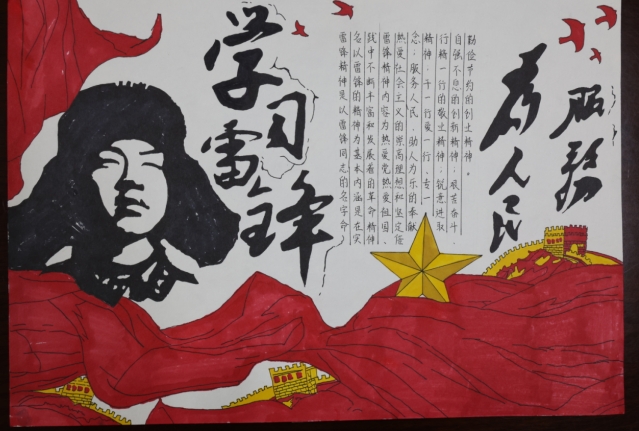 学习
雷锋
雷锋精神是以雷锋同志的名字命
名以雷锋的精神为基本内涵是在实
践中不断丰富和发展着的革命精神
雷锋精神内容为热爱党热爱祖国、
热爱社会主义的崇高理想和坚定信
念;服务人民、助人为乐的奉献
精神;干一行爱一行、专一
行精一行的敬业精神;锐意进取
自强不息的创新精神;艰苦奋斗、
勤俭节约的创业精神。
为人民
服务